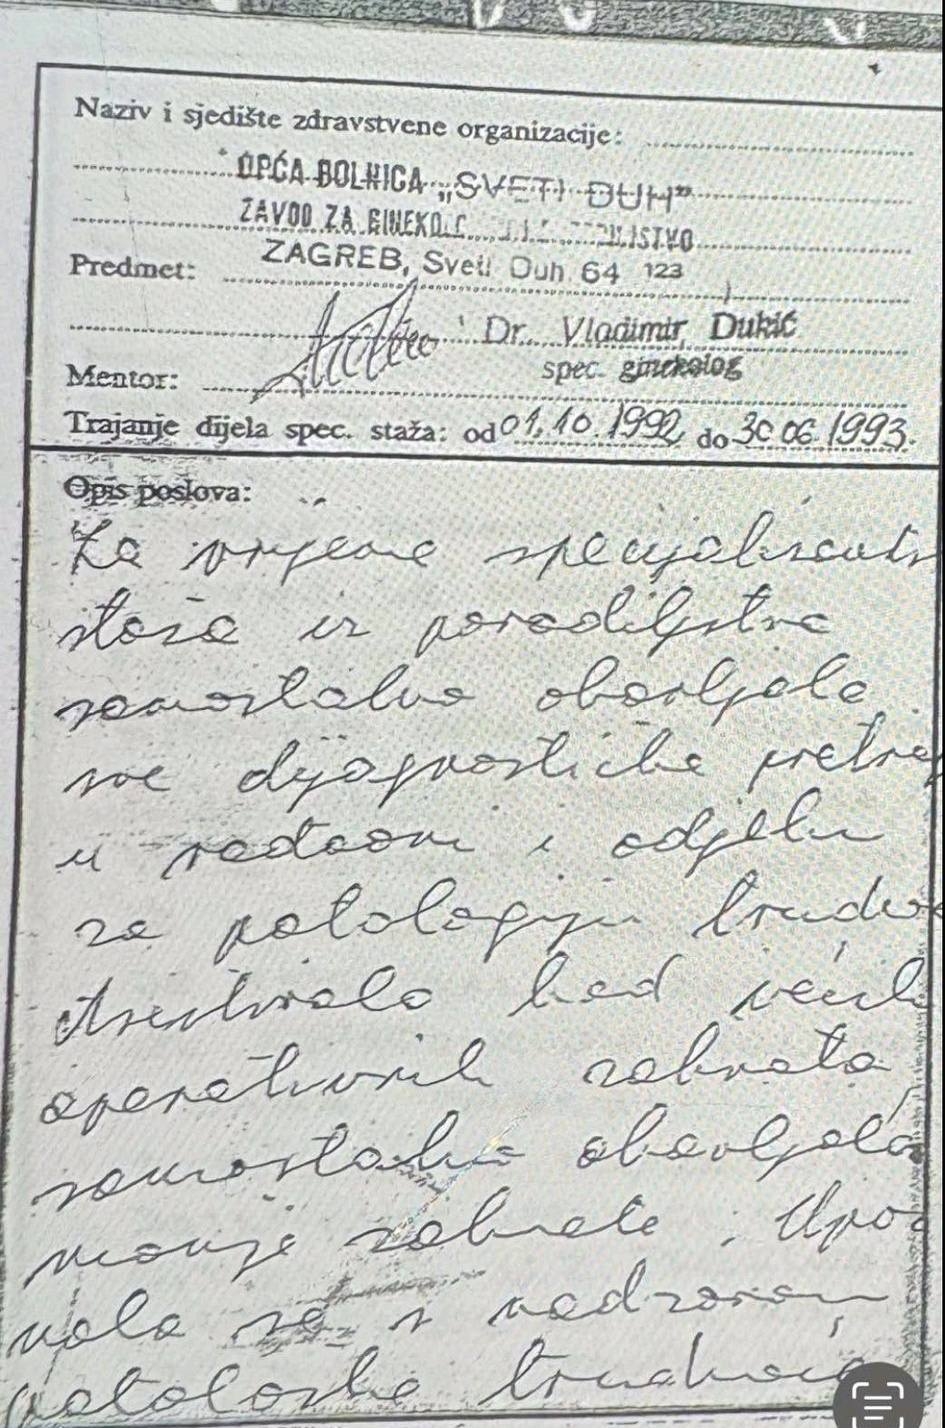 Naziv i sjedište zdravstvene organizacije:
OPĆA BOLNICA „SVETI DUH"
ZAVOD ZA
ZAGREB, Sveti Duh 64 123
Predmet:
Dr. Vladimir Dukić
spec. ginekolog
Mentor:
Trajanje dijela spec. staža: od 01.10.1992 do 30 06.1993.
Opis poslova:
Za vrijeme
staža iz porodiljstva
samostalno obavljala
sve dijagnostičke
u rađaoni i odjelu
za patologiju
Asistirala kod
operativnih zahvata
samostalno obavljala
manje zahvate. Upoz
nala se s nadzorom
patološke